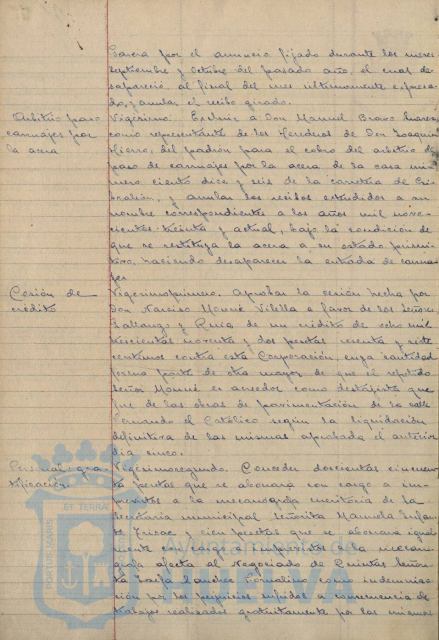 García por el anuncio fijado durante los meses
septiembre y octubre del pasado año, el cual de-
sapareció al final del mes ultimamente expresa-
do, y anular el recibo girado.
Arbitrio paso
carruajes por
la acera
Vigesimo. Excluir a Don Manuel Bravo Suarez,
como representante de los Herederos de Don Joaquin
Hierro, del padrón para el cobro del arbitrio de
paso de carruajes por la acera de la casa nú-
mero ciento diez y seis de la carretera de Gi-
braleón, y anular los recibos extendidos a su
nombre correspondientes a los años mil nove-
cientos treinta y actual, bajo la condición de
que se restituya la acera a su estado primi-
tivo, haciendo desaparecer la entrada de carrua-
jes
Cesión de
crédito
Vigesimoprimero. Aprobar la cesión hecha por
Don Narciso Vilella a favor de los Señores
y de un crédito de ocho mil
trescientas noventa y dos pesetas sesenta y siete
centimos contra esta Corporación, cuya cantidad
forma parte de otra mayor de que el repetido
Señor es acreedor como destajista que
fue de las obras de pavimentación de la calle
Fernando el Católico segun la liquidación
definitiva de las mismas aprobada el anterior
dia cinco.
Personal: gra-
tificación
Vigesimosegundo. Conceder doscientas cincuen-
ta pesetas que se abonará con cargo a im-
previstos a la mecanografa meritoria de la
Secretaria municipal Señorita Manuela
y cien pesetas que se abonará igual-
mente con cargo a imprevistos a la mecanó-
grafa afecta al Negociado de Quintas Seño-
rita Sanchez como indemniza-
ción por los perjuicios sufridos a consecuencia de
trabajos realizados gratuitamente por las mismas
ET TERRA
PORTUS MARIS
Ayuntamiento de
HUELVA